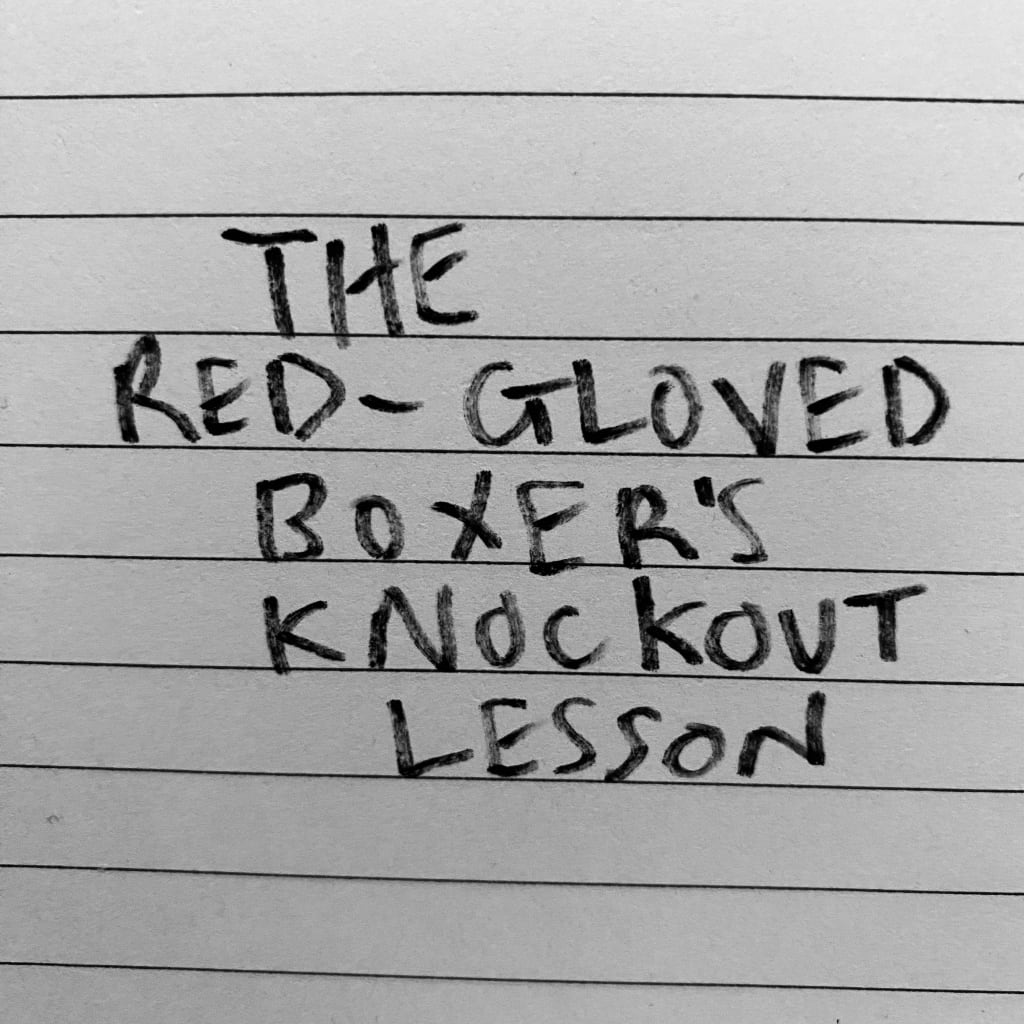 THE
RED-GLOVED
BOXER'S
KNOCKOUT
LESSON